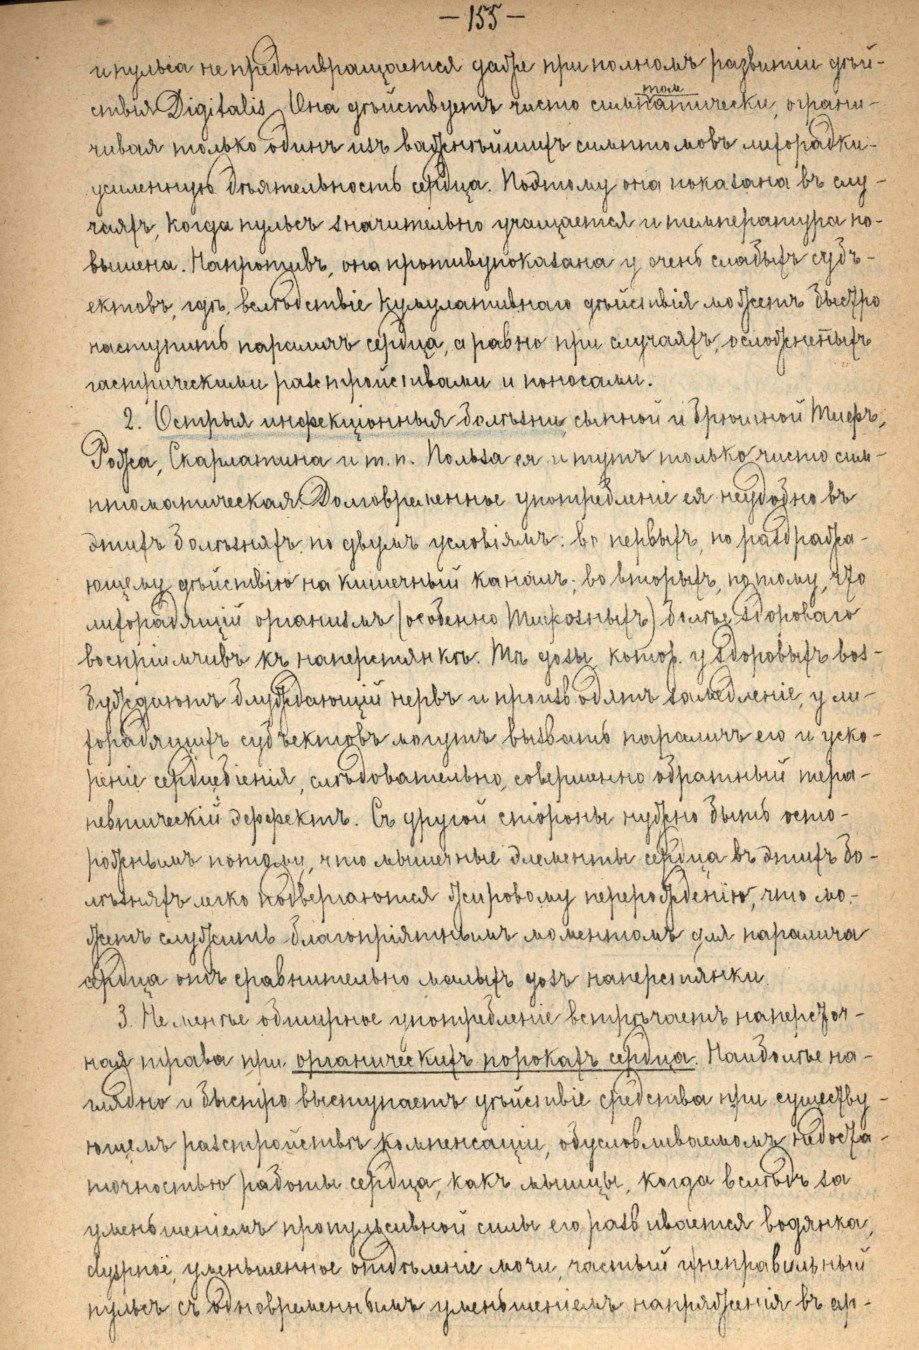 — 155 —
и пульса не предотвращается даже при полномъ развитіи дѣй-
ствія Digitalis. Она дѣйствуетъ чисто симптоматически, ограни-
чивая только одинъ изъ важнѣйшихъ симптомовъ лихорадки -
усиленную дѣятельность сердца. Поэтому она показана въ слу-
чаяхъ, когда пульсъ значительно учащается и температура по-
вышена. Напротивъ, она противупоказана у очень слабыхъ субъ-
ектовъ, гдѣ, вслѣдствіе кумулативнаго дѣйствія можетъ быстро
наступить параличъ сердца, а равно при случаяхъ, осложненныхъ
гастрическими разстройствами и поносами.
2. Острыя инфекціонныя болѣзни, сыпной и брюшной Тифъ,
Рожа, Скарлатина и т. п. Польза ея и тутъ только чисто сим-
птоматическая. Долговременное употребленіе ея неудобно въ
этихъ болѣзняхъ по двумъ условіямъ: во первыхъ, по раздража-
ющему дѣйствію на кишечный каналъ; во вторыхъ, потому, что
лихорадящій организмъ (особенно Тифозныхъ) болѣе здороваго
воспріимчивъ къ наперстянкѣ. Тѣ дозы, котор. у здоровыхъ воз-
буждаютъ блуждающій нервъ и производятъ замедленіе, у ли-
хорадящихъ субъектовъ могутъ вызвать параличъ его и уско-
реніе сердцебіенія, слѣдовательно, совершенно обратный тера-
певтическій эффектъ. Съ другой стороны нужно быть осто-
рожнымъ потому, что мышечные элементы сердца въ этихъ бо-
лѣзняхъ легко подвергаются жировому перерожденію, что мо-
жетъ служить благопріятнымъ моментомъ для паралича
сердца отъ сравнительно малыхъ дозъ наперстянки.
3. Не менѣе обширное употребленіе встрѣчаетъ наперсточ-
ная трава при органическихъ порокахъ сердца. Наиболѣе на-
глядно и быстро выступаетъ дѣйствіе средства при существу-
ющемъ разстройствѣ компенсаціи, обусловливаемомъ недоста-
точностью работы сердца, какъ мышцы, когда вслѣдъ за
уменьшеніемъ пропульсивной силы его развивается водянка,
dyspnoë, уменьшенное отдѣленіе мочи, частый и неправильный
пульсъ съ одновременнымъ уменьшеніемъ напряженія въ ар-